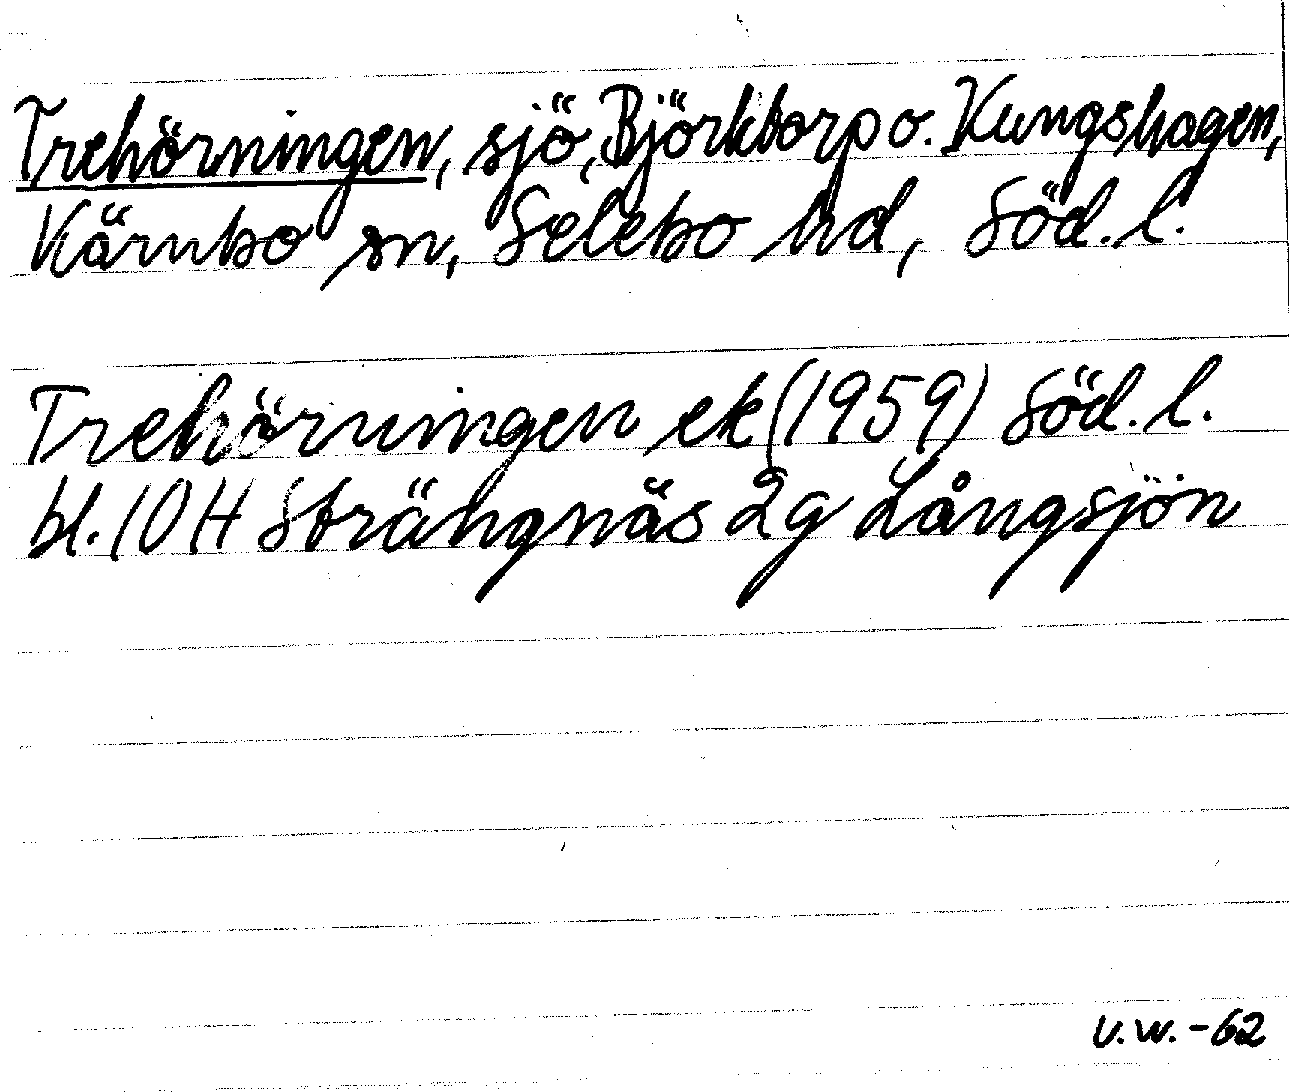 Trehörningen, sjö, Björktorp o. Kungshagen,
Kärnbo sn, Selebo hd, Söd. l.
Trehörningen ek (1959) Söd. l.
bl. 10 H Strängnäs 2g Långsjön
v.w. -62